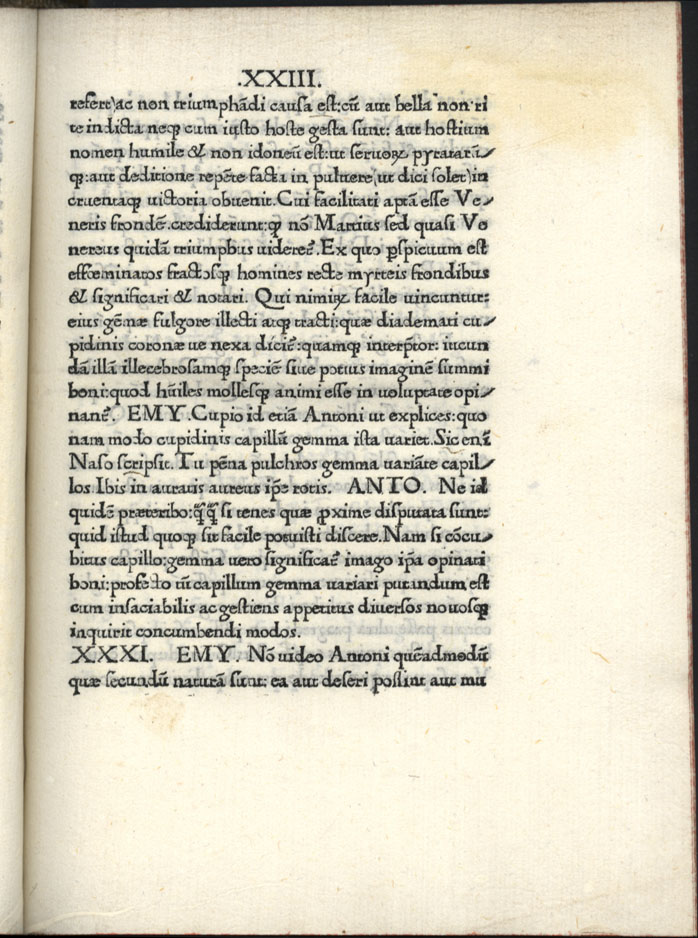 .XXIII.
refert)ac non triumphādi causa est:cū aut bella non ri
te indicta neqꝫ cum iusto hoste gesta sunt: aut hostium
nomen humile & non idoneū est:ut seruoꝝ pyratarū⸗
qꝫ:aut deditione repēte facta in puluere(ut dici solet)in
cruentaqꝫ uictoria obuenit.Cui facilitati aptā esse Ve⸗
neris frondē.crediderunt:qꝫ nō Martius sed quasi Ve
nereus quidā triumphus uidereꞇ̃.Ex quo ꝑspicuum est
effœminatos fractosqꝫ homines recte myrteis frondibus
& significari & notari. Qui nimiꝝ facile uincuntur:
eius gēmæ fulgore illecti atqꝫ tracti:quæ diademati cu⸗
pidinis coronæ ue nexa diciꞇ̃:quamqꝫ interp̄tor: iucun
dā illā illecebrosamqꝫ speciē siue potius imaginē summi
boni:quod hūiles mollesqꝫ animi esse in uoluptate opi⸗
nanꞇ̃. EMY.Cupio id etiā Antoni ut explices:quo
nam modo cupidinis capillū gemma ista uariet.Sic enī
Naso scripsit.Tu pēna pulchros gemma uariāte capil⸗
los Ibis in auratis aureus ip̄e rotis. ANTO. Ne id
quidē præteribo:q̄q̄ si tenes quæ ꝓxime disputata sunt:
quid istud quoqꝫ sit facile potuisti discere.Nam si cōcu⸗
bitus capillo:gemma uero significaꞇ̃ imago ip̄a opinati
boni:profecto tū capillum gemma uariari putandum est
cum insaciabilis ac gestiens appetitus diuersos nouosqꝫ
inquirit concumbendi modos.
XXXI. EMY. Nō uideo Antoni quēadmodū
quæ secundū naturā sunt: ea aut deseri possint aut mu